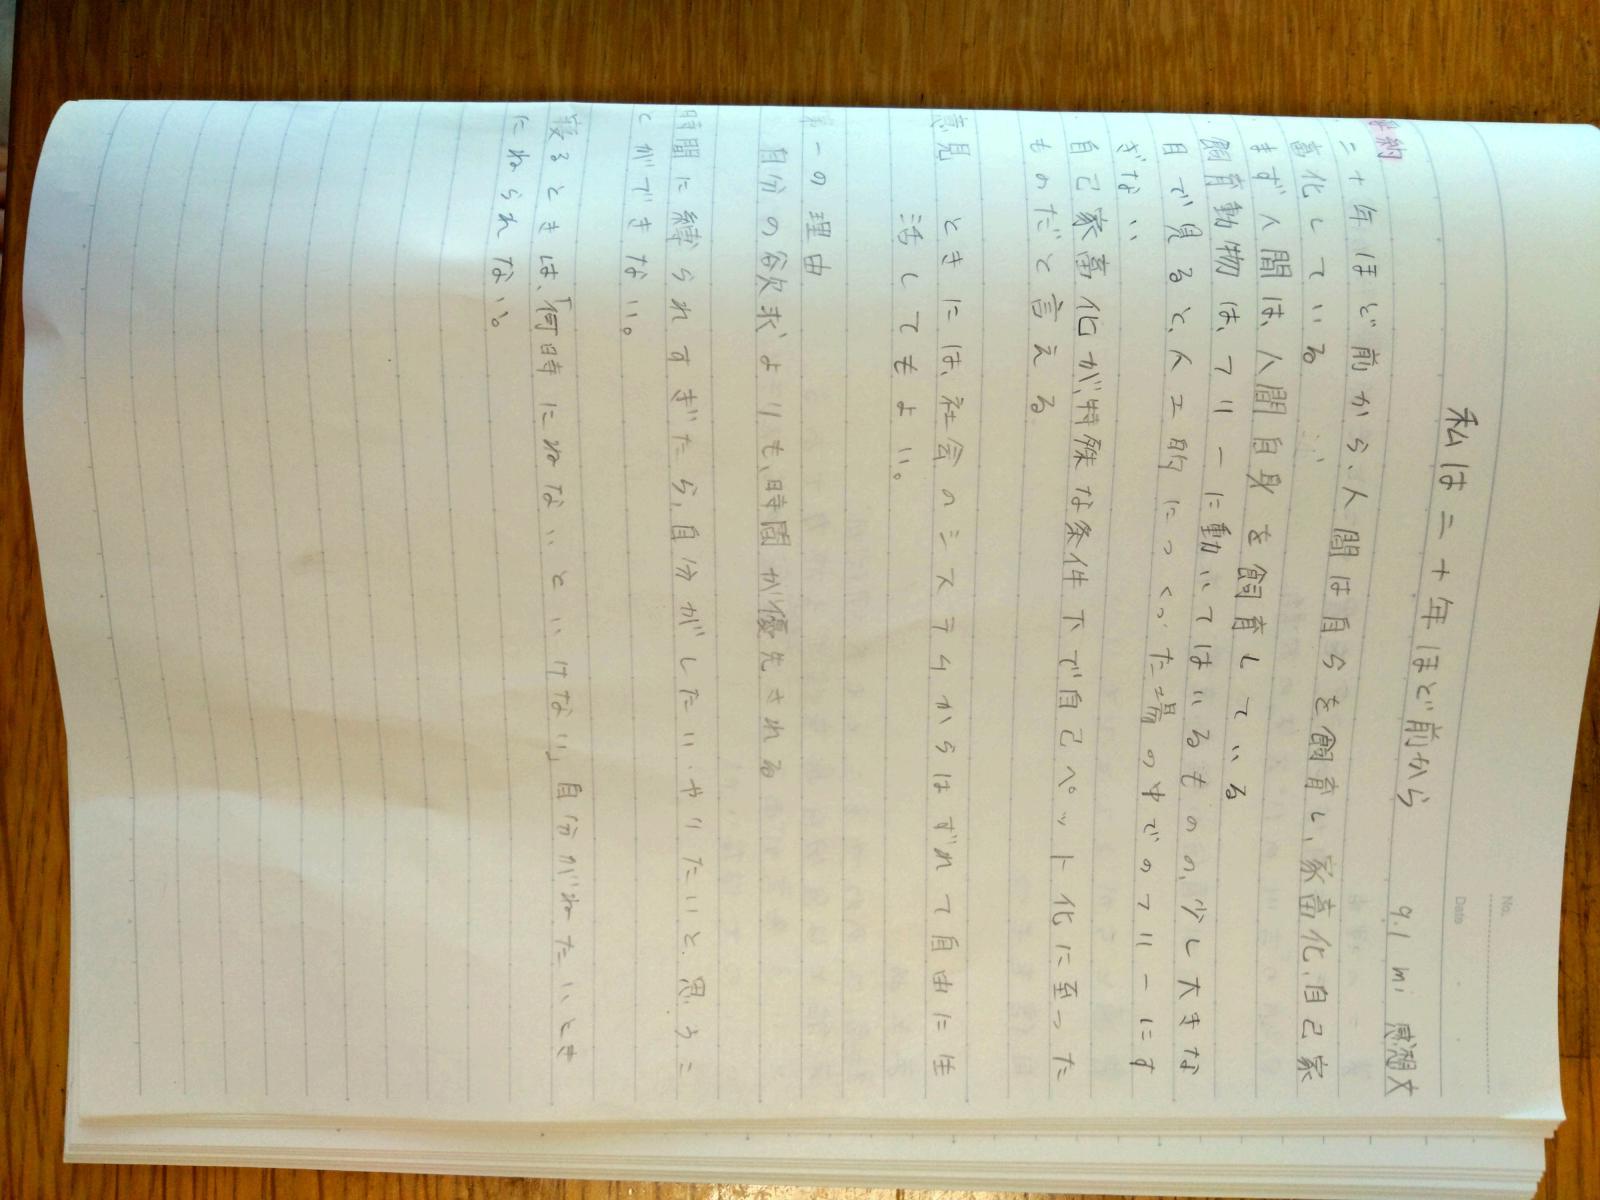 No.
Date
私は二十年ほど前から
9.1 mi 感想文
要約
二十年ほど前から、人間は自らを飼育し、家畜化、自己家
畜化している
まず人間は、人間自身を飼育している
飼育動物は、フリーに動いてはいるものの、少し大きな
目で見ると、人工的につくった場の中でのフリーにす
ぎない
自己家畜化が、特殊な条件下で自己ペット化に至った
ものだと言える
意見 ときには、社会のシステムからはずれて自由に生
活してもよい。
第一の理由
自分の欲求よりも、時間が優先される
時間に縛られすぎたら、自分がしたい、やりたいと思うこ
とができない。
寝るときは、「何時にねないといけない」自分がねたいとき
にねられない。